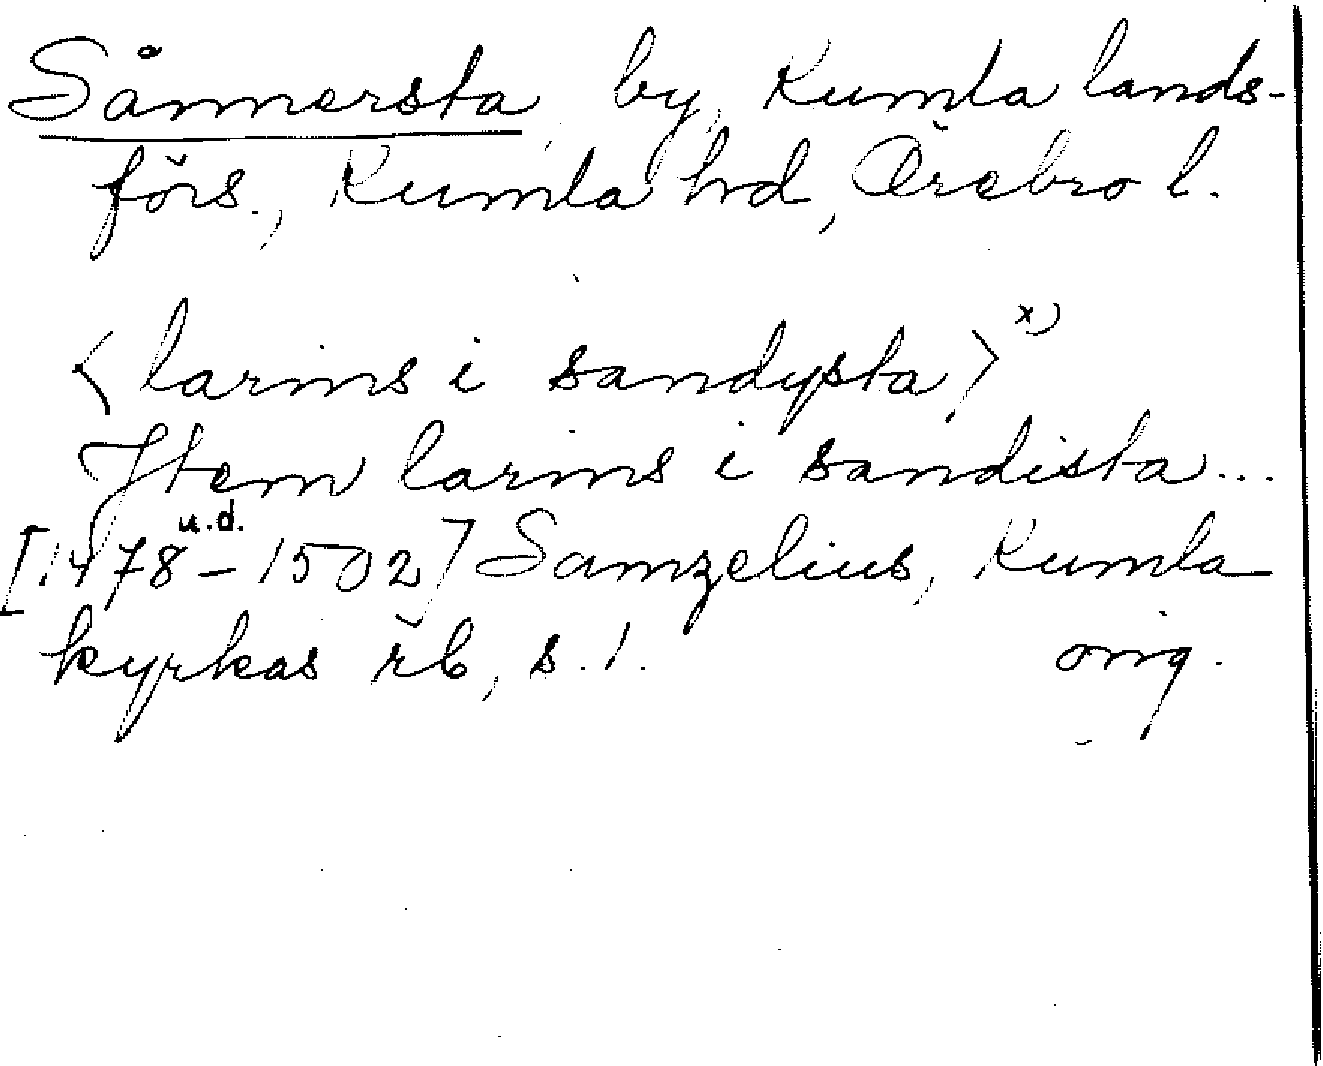 Sånnersta, by, Kumla lands-
förs., Kumla hd, Örebro l.
<larins i sandysta>x)
Jtem larins i sandista...
[1478 u.d. – 1502] Samzelius, Kumla
kyrkas rb, s. 1. orig.